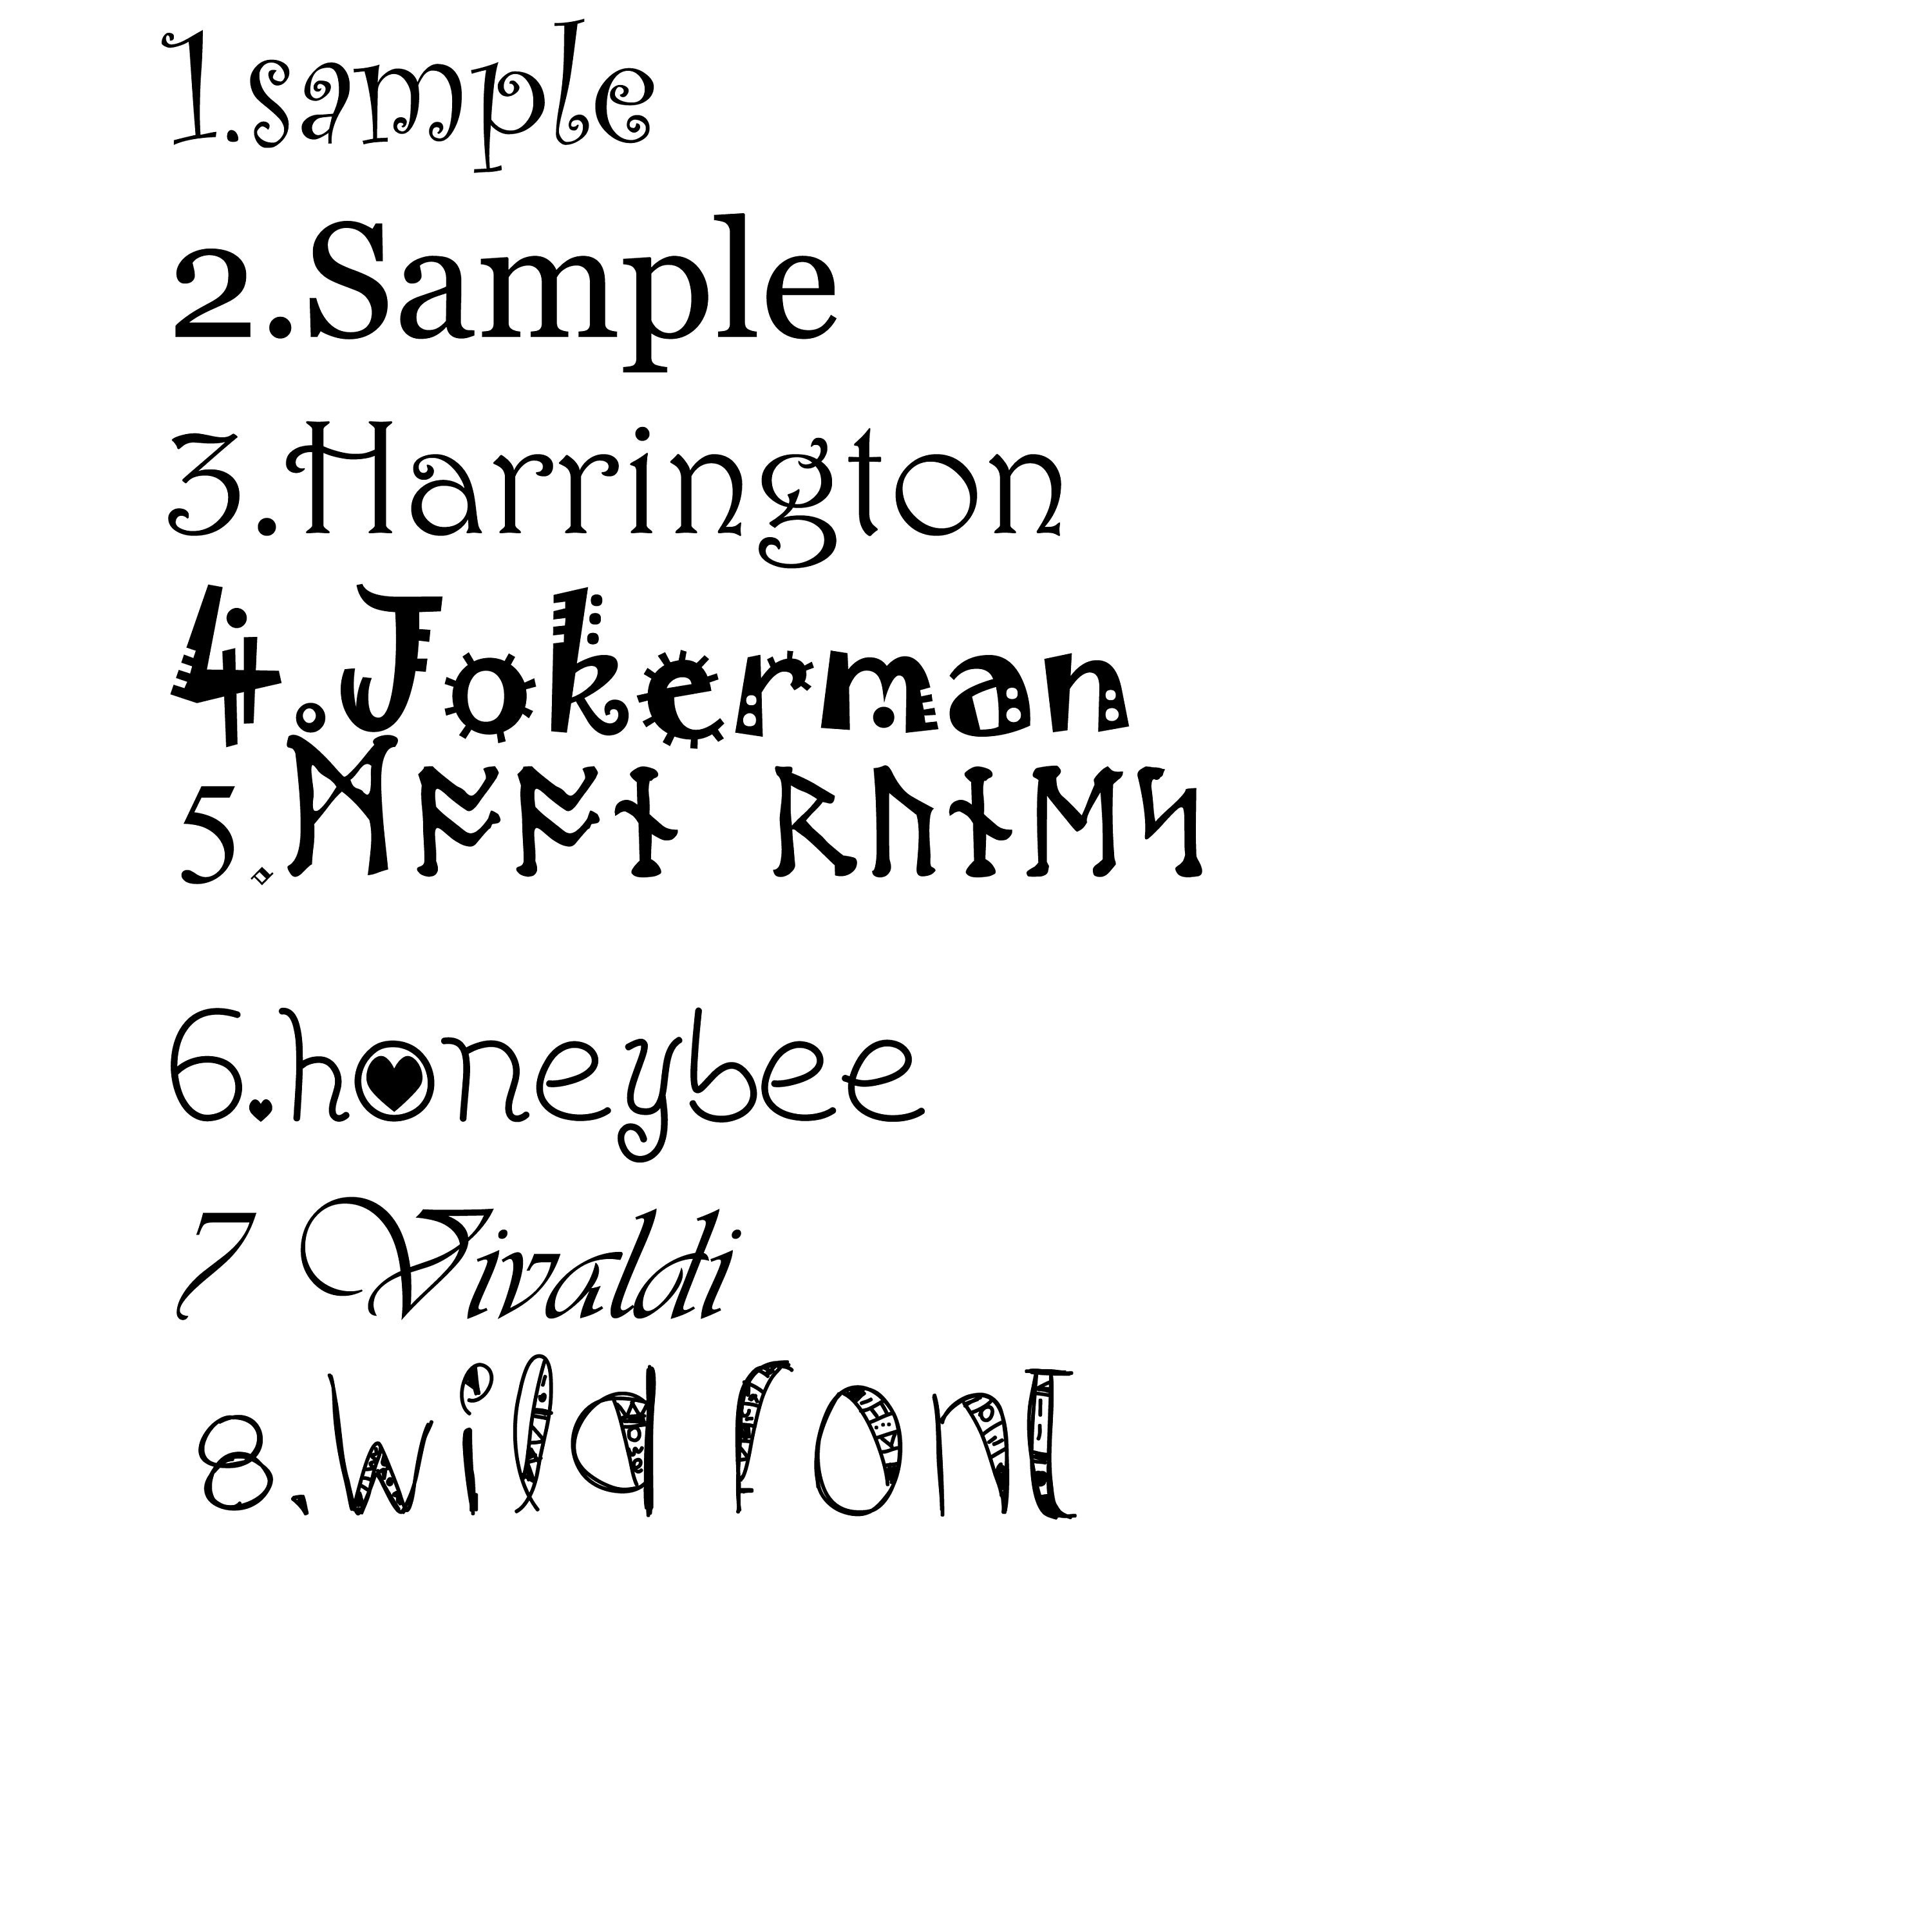 1.sample
2.Sample
3.Harrington
4.Jokerman
5.ᛗᚩᚩᚾ ᚱᚢᚾᛖᛋ
6.honeybee
7 Vivaldi
8.wild font